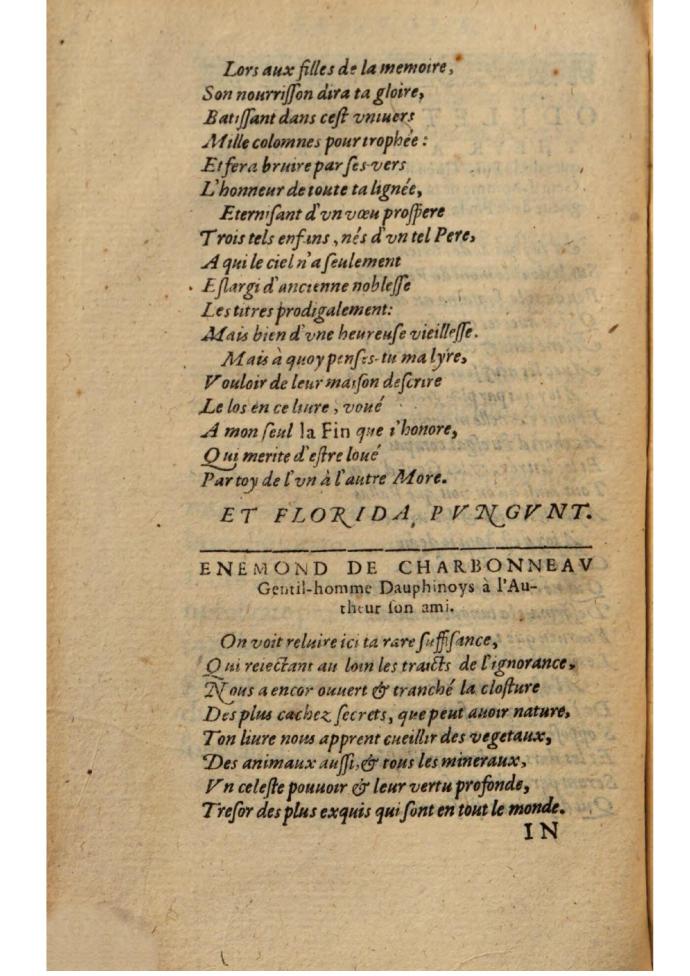 Lors aux filles de la memoire,
Son nourrisson dira ta gloire,
Batissant dans cest vniuers
Mille colomnes pour trophée :
Et fera bruire par ses vers
L'honneur de toute ta lignée,
Eternisant d'vn vœu prospere
Trois tels enfans, nés d'vn tel Pere,
A qui le ciel n'a seulement
Eslargi d'ancienne noblesse
Les titres prodigalement:
Mais bien d'vne heureuse vieillesse.
Mais à quoy penses-tu ma lyre,
Vouloir de leur maison descrire
Le los en ce liure, voué
A mon seul la Fin que i'honore,
Qui merite d'estre loué
Par toy de l'vn à l'autre More.
ET FLORIDA PVNGVNT.
ENEMOND DE CHARBONNEAV
Gentil-homme Dauphinoys à l'Au-
theur son ami.
On voit reluire ici ta rare suffisance,
Qui reiectant au loin les traicts de l'ignorance,
Nous a encor ouuert & tranché la closture
Des plus cachez secrets, que peut auoir nature,
Ton liure nous apprent cueillir des vegetaux,
Des animaux aussi, & tous les mineraux,
Vn celeste pouuoir & leur vertu profonde,
Tresor des plus exquis qui sont en tout le monde.
IN